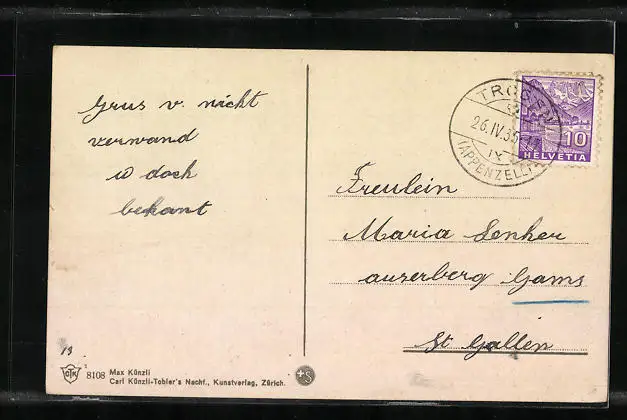 Grus v. nicht
verwand
u doch
bekant
TROGEN
26.IV.35
(APPENZELL)
10
HELVETIA
Freulein
Maria Lenher
auserberg Gams
St Gallen
13
CTK 8108 Max Künzli
Carl Künzli-Tobler's Nachf., Kunstverlag, Zürich.
S